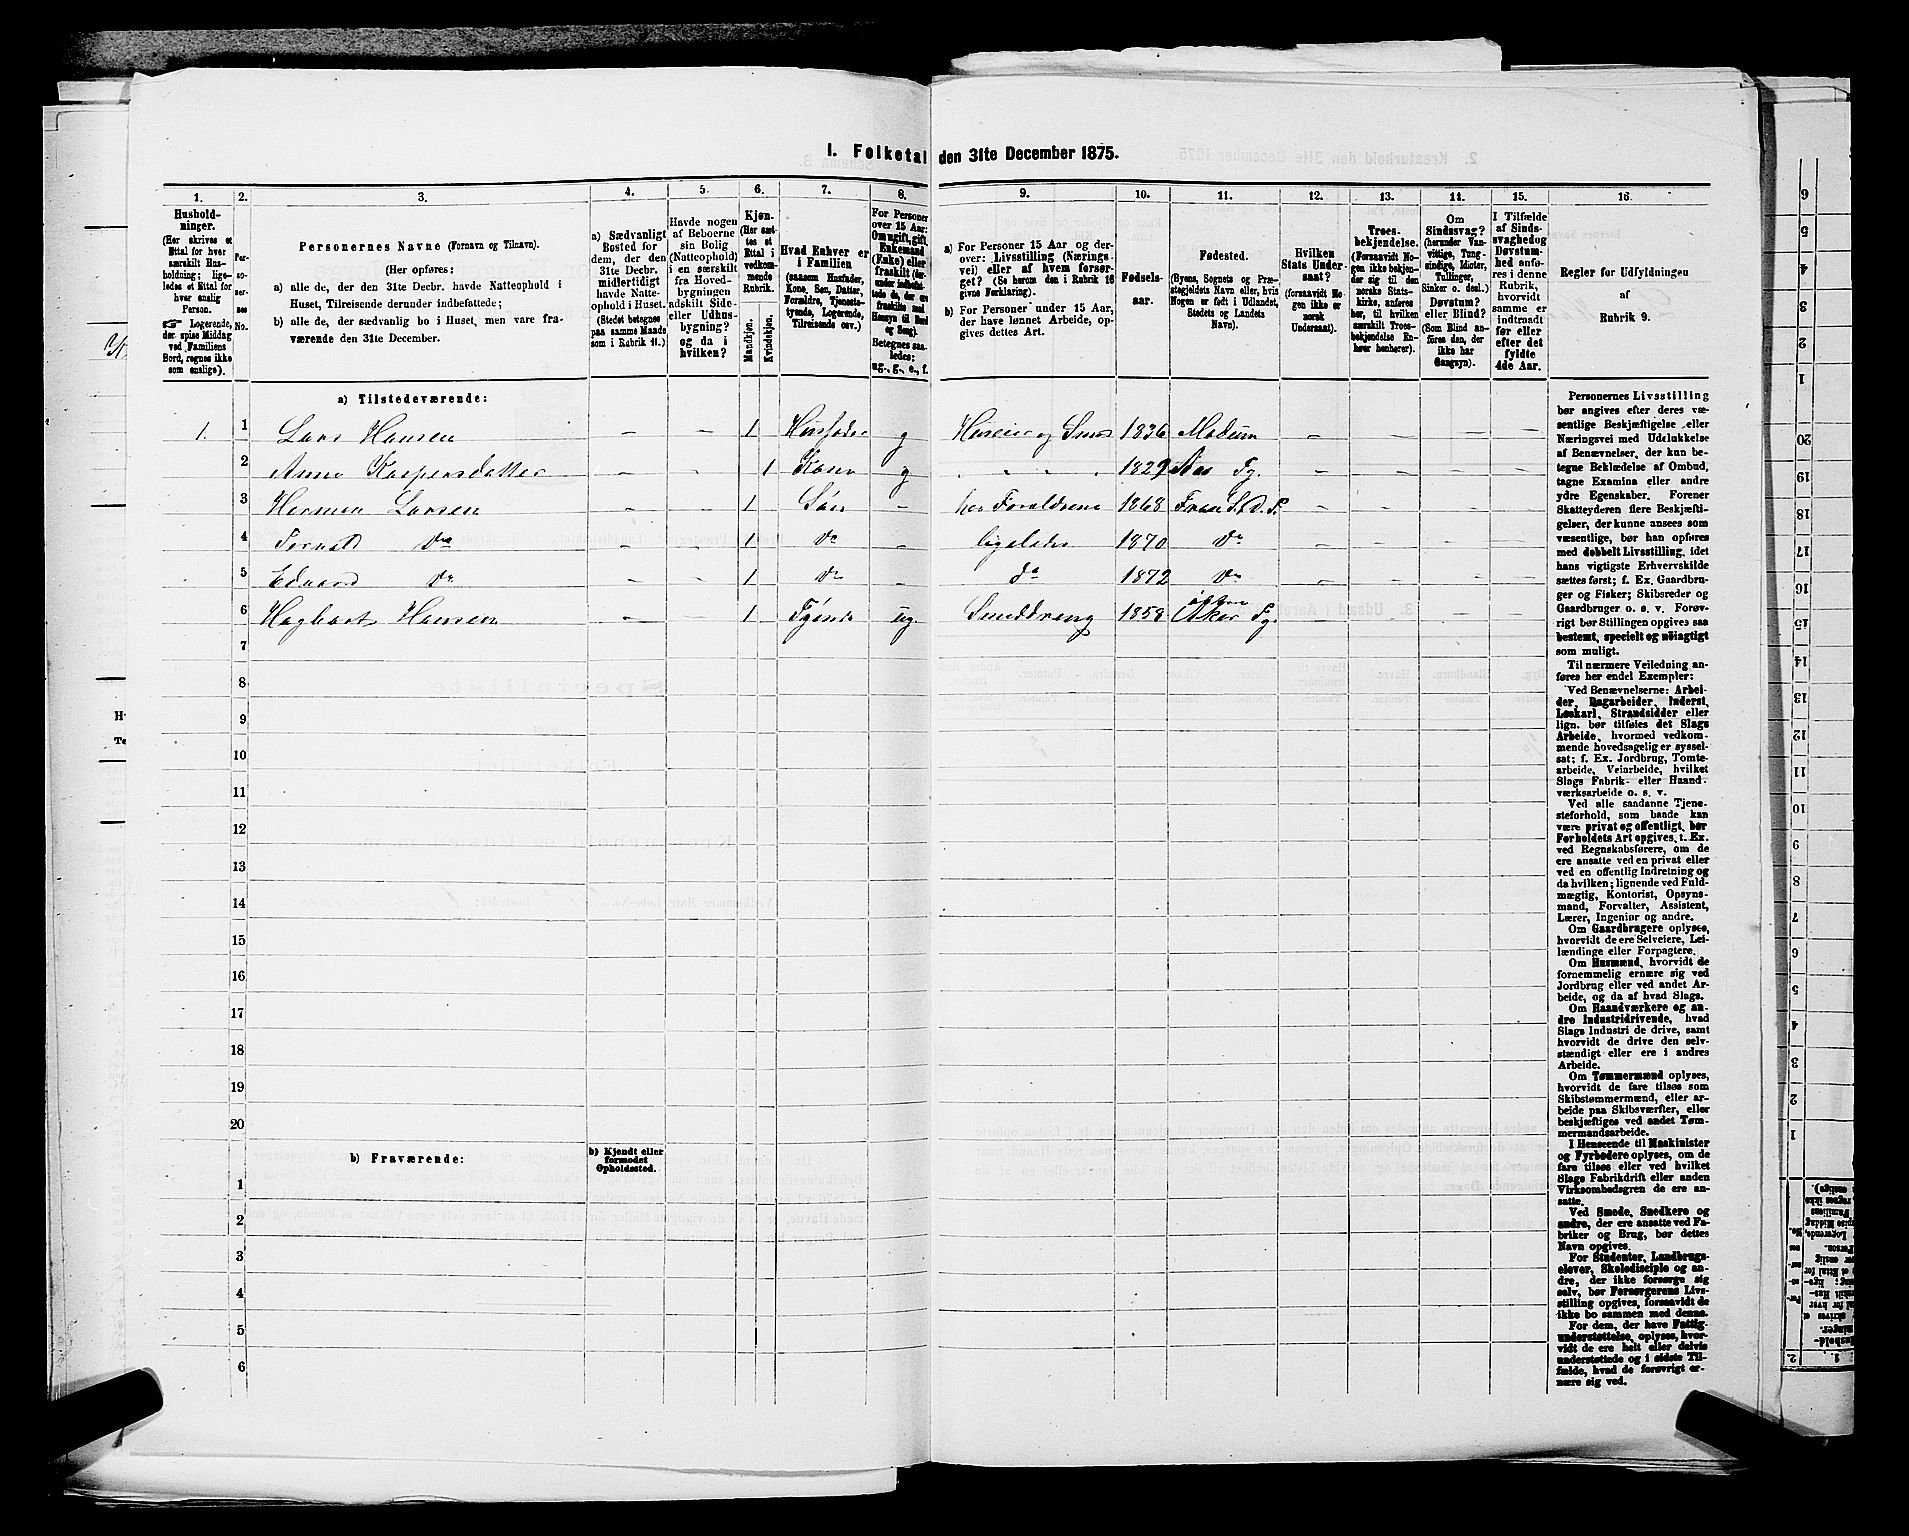 I. Folketal den 31te December 1875.
1. 2. 3. 4. 5. 6. 7. 8. 9. 10. 11. 12. 13. 14. 15. 16.
Hushold-
ninger.
(Her skrives et
Ettal for hver
særskilt Hus-
holdning; lige-
ledes et Ettal
for hver enslig
Person.
☞ Logerende,
der spise Middag
ved Familiens
Bord, regnes ikke
som enslige).
Per-
so-
ner-
nes
No.
Personernes Navne (Fornavn og Tilnavn).
(Her opføres:
a) alle de, der den 31te Decbr. havde Natteophold i
Huset, Tilreisende derunder indbefattede;
b) alle de, der sædvanlig bo i Huset, men vare fra-
værende den 31te December.
a) Sædvanligt
Bosted for
dem, der den
31te Decbr.
midlertidigt
havde Natte-
ophold i Huset.
(Stedet betegnes
paa samme Maade
som i Rubrik 11.)
Havde nogen
af Beboerne
sin Bolig
(Natteophold)
i en særskilt
fra Hoved-
bygningen
adskilt Side-
eller Udhus-
bygning?
og da i
hvilken?
Kjøn.
(Her sæt-
tes et
Ettal i
vedkom-
mende
Rubrik.
Mandkjøn.
Kvindekjøn.
Hvad Enhver er
i Familien
(saasom Husfader,
Kone, Søn, Datter,
Forældre, Tjeneste-
tyende, Logerende,
Tilreisende osv.)
For Personer
over 15 Aar:
Om ugift, gift,
Enkemand
(Enke) eller
fraskilt (der-
under indbefat-
tede de, der ere
fraskilte med
Hensyn til Bord
og Seng).
Betegnes saa-
ledes:
ug., g., e., f.
a) For Personer 15 Aar og der-
over: Livsstilling (Nærings-
vei) eller af hvem forsør-
get? (Se herom den i Rubrik 16
givne Forklaring).
b) For Personer under 15 Aar,
der have lønnet Arbeide, op-
gives dettes Art.
Fødsels-
aar.
Fødested.
(Byens, Sognets og Præ-
stegjeldets Navn eller, hvis
Nogen er født i Udlandet,
Stedets og Landets
Navn).
Hvilken
Stats Under-
saat?
(forsaavidt No-
gen ikke er
norsk
Undersaat).
Troes-
bekjendelse.
(Forsaavidt No-
gen ikke bekjen-
der sig til den
norske Stats-
kirke, anføres
her, til hvilken
særskilt Troes-
bekjendelse En-
hver henhører).
Om
Sindssvag?
(herunder Van-
vittige, Tung-
sindige, Idioter,
Tullinger,
Sinker o. desl.)
Døvstum?
eller Blind?
(Som Blind an-
føres den, der
ikke har
Gangsyn).
I Tilfælde
af Sinds-
svaghedog
Døvstum-
hed anfø-
res i denne
Rubrik,
hvorvidt
samme er
indtraadt
før eller
efter det
fyldte
4de Aar.
Regler for Udfyldningen
af
Rubrik 9.
a) Tilstedeværende:
1. 1 Lars Hansen – – 1 Husfader g Huseier og Smed 1836 Modum – – – –
2 Anne Kaspersdatter – – 1 Kone g " " " 1829 Aas Pg. – – – –
3 Herman Larsen – – 1 Søn – hos Forældrene 1868 – – – –
4 do – – 1 do – ligeledes 1870 do – – – –
5 Edvard do – – 1 do – do 1872 do – – – –
6 Hagbart Hansen – – 1 ug Smeddreng 1858 Aker Pg. – – – –
7
8
9
10
11
12
13
14
15
16
17
18
19
20
b) Fraværende:
b) Kjendt eller
formodet
Opholdssted.
1
2
3
4
5
6
Personernes Livsstilling
bør angives efter deres væ-
sentlige Beskjæftigelse eller
Næringsvei med Udelukkelse
af Benævnelser, der kun be-
tegne Beklædelse af Ombud,
tagne Examina eller andre
ydre Egenskaber. Forener
Skatteyderen flere Beskjæfti-
gelser, der kunne ansees som
væsentlige, bør han opføres
med dobbelt Livsstilling, idet
hans vigtigste Erhvervskilde
sættes først; f. Ex. Gaardbru-
ger og Fisker; Skibsreder og
Gaardbruger o. s. v. Forøv-
rigt bør Stillingen opgives saa
bestemt, specielt og nøiagtigt
som muligt.
Til nærmere Veiledning an-
føres her endel Exempler:
Ved Benævnelserne: Arbei-
der, Dagarbeider, Inderst,
Løskarl, Strandsidder eller
lign. bør tilføies det Slags
Arbeide, hvormed vedkom-
mende hovedsagelig er syssel-
sat; f. Ex. Jordbrug, Tomte-
arbeide, Veiarbeide, hvilket
Slags Fabrik- eller Haand-
værksarbeide o. s. v.
Ved alle saadanne Tjene-
steforhold, som baade kan
være privat og offentligt, bør
Forholdets Art opgives, t. Ex.
ved Regnskabsførere, om de
ere ansatte ved en privat eller
ved en offentlig Indretning og
da hvilken; lignende ved Fuld-
mægtig, Kontorist, Opsyns-
mand, Forvalter, Assistent,
Lærer, Ingeniør og andre.
Om Gaardbrugere oplyses,
hvorvidt de ere Selveiere, Lei-
lændinge eller Forpagtere.
Om Husmænd, hvorvidt de
fornemmelig ernære sig ved
Jordbrug eller ved andet Ar-
beide, og da af hvad Slags.
Om Haandværkere og an-
dre Industridrivende, hvad
Slags Industri de drive, samt
hvorvidt de drive den selv-
stændigt eller ere i andres
Arbeide.
Om Tømmermænd oplyses,
hvorvidt de fare tilsøs som
Skibstømmermænd, eller ar-
beide paa Skibsværfter, eller
beskjæftiges ved andet Tøm-
mermandsarbeide.
I Henseende til Maskinister
og Fyrbødere oplyses, om de
fare tilsøs eller ved hvilket
Slags Fabrikdrift eller anden
Virksomhedsgren de ere an-
satte.
Ved Smede, Snedkere og
andre, der ere ansatte ved Fa-
briker og Brug, bør dettes
Navn opgives.
For Studenter, Landbrugs-
elever, Skoledisciple og an-
dre, der ikke forsørge sig
selv, bør Forsørgerens Livs-
stilling opgives, forsaavidt de
ikke bo sammen med denne.
For dem, der have Fattig-
understøttelse, oplyses, hvor-
vidt de ere helt eller delvis
understøttede og i sidste Til-
fælde, hvad de forøvrigt er-
nære sig ved.